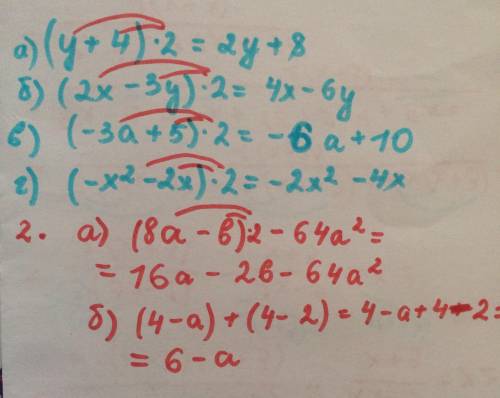 а) (y + 4) · 2 = 2y + 8
б) (2x - 3y) · 2 = 4x - 6y
в) (-3a + 5) · 2 = -6a + 10
г) (-x² - 2x) · 2 = -2x² - 4x
2. а) (8a - b) · 2 - 64a² =
= 16a - 2b - 64a²
б) (4 - a) + (4 - 2) = 4 - a + 4 - 2 =
= 6 - a